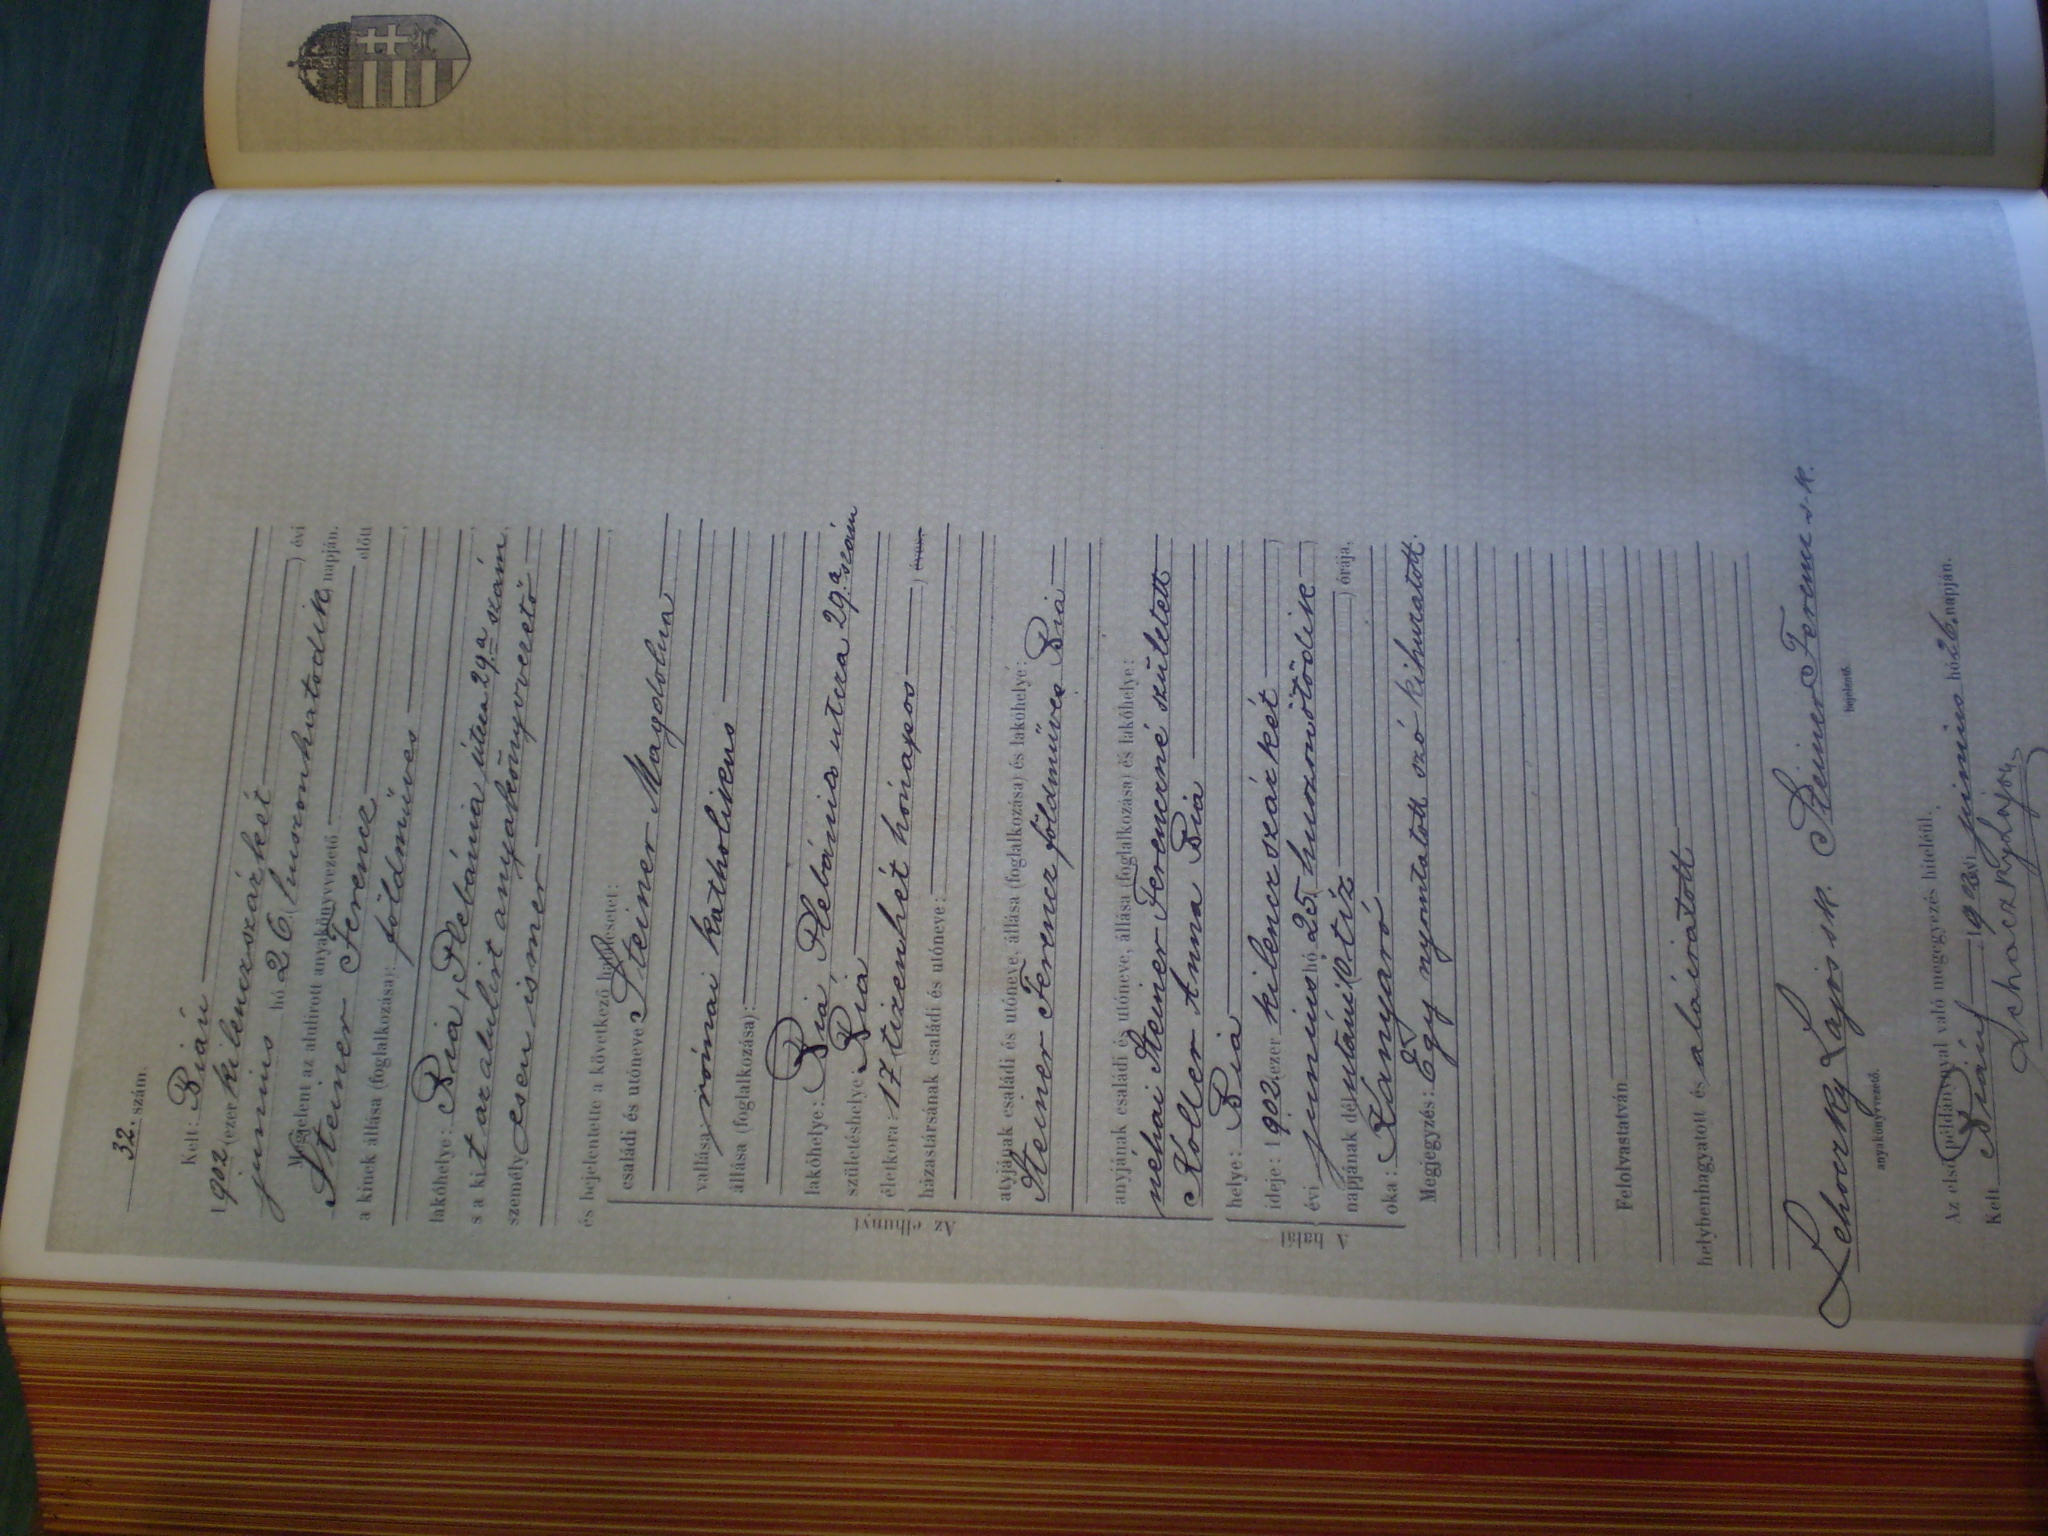 32. szám.
Kelt: Bián
1902 (ezer kilenczszázkét ) évi
junius hó 26 (huszonhatodik) napján.
Megjelent az alulirott anyakönyvvezető előtt
Steiner Ferencz
a kinek állása (foglalkozása): földműves
lakóhelye: Bia, Plebánia útcza 29.a szám,
s a kit az alulirt anyakönyvvezető
személyesen ismer
és bejelentette a következő halálesetet:
Az elhunyt
családi és utóneve Steiner Magdolna
vallása: római katholikus
állása (foglalkozása):
lakóhelye: Bia, Plebánia utcza 29.a szám
születéshelye: Bia
életkora: 17 (tizenhét hónapos ) éves
házastársának családi és utóneve:
atyjának családi és utóneve, állása (foglalkozása) és lakóhelye:
Steiner Ferencz földműves Bia
anyjának családi és utóneve, állása (foglalkozása) és lakóhelye:
néhai Steiner Ferenczné született
Koller Anna Bia
A halál
helye: Bia
ideje: 1902 (ezer kilenczszázkét )
évi junius hó 25 (huszonötödik )
napjának délutáni (tíz ) órája,
oka: Kanyaró
Megjegyzés: Egy nyomtatott szó kihuzatott.
Felolvastatván
helybenhagyatott és aláiratott
Lehoczky Lajos s.k. Steiner Ferencz s.k.
anyakönyvvezető. bejelentő.
Az első példánynyal való megegyezés hiteléül.
Kelt Bián 1902 évi junius hó 26. napján.
Lehoczky Lajos